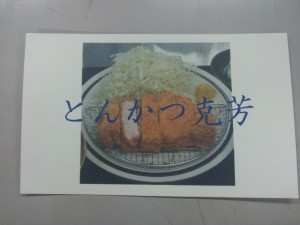 とんかつ克芳